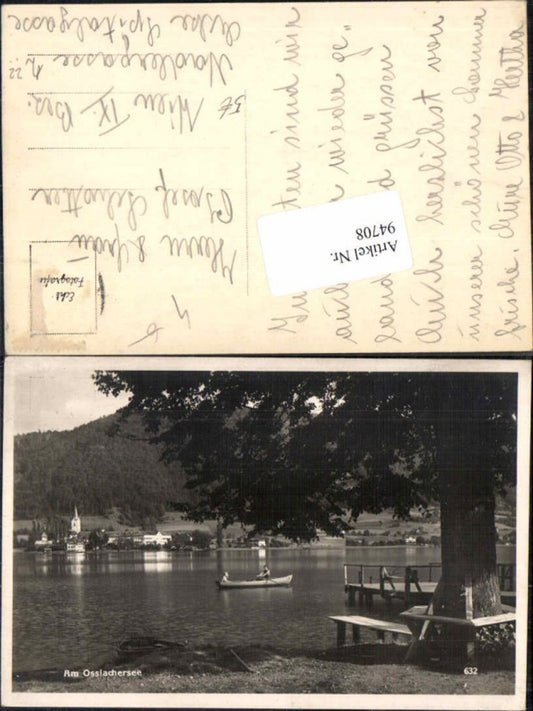 Herrn & Frau
Josef
Wien IX. Bez.
Nordbergasse 22
Ecke Spitalgasse
Echt
Fotografie
Artikel Nr.
94708
sind wir
wieder ge
grüssen
Euch herzlichst von
unserer schönen Sommer
frische. Otto & Hertha
Am Ossiachersee
632